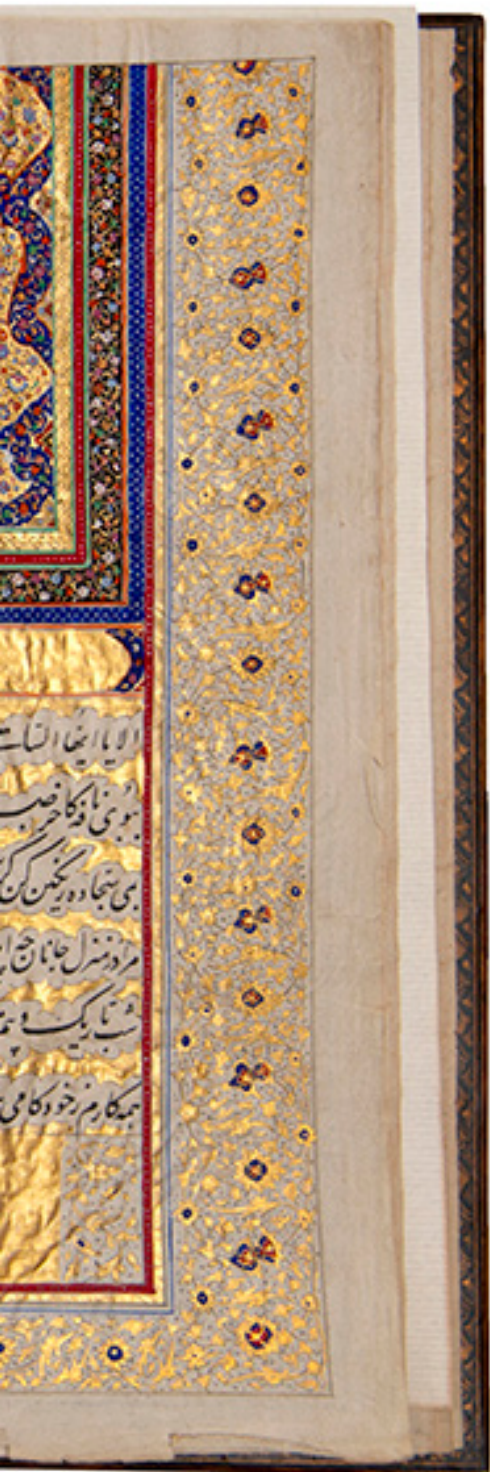 الا یا ایها السا
ببوی نافه کاخر صب
بمی سجاده رنکین کن کر
مرا در منزل جانان چه
شب تاریک و
همه کارم ز خودکامی